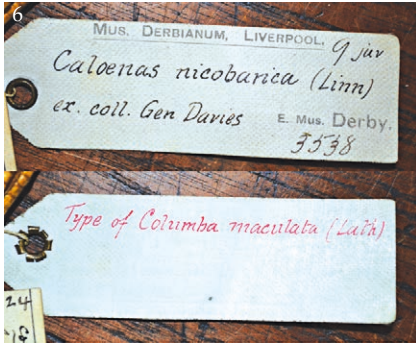 6
MUS. DERBIANUM, LIVERPOOL.
♀ juv
Caloenas nicobarica (Linn)
ex. coll. Gen Davies
E. MUS. Derby.
3538
Type of Columba maculata (Lath)
24